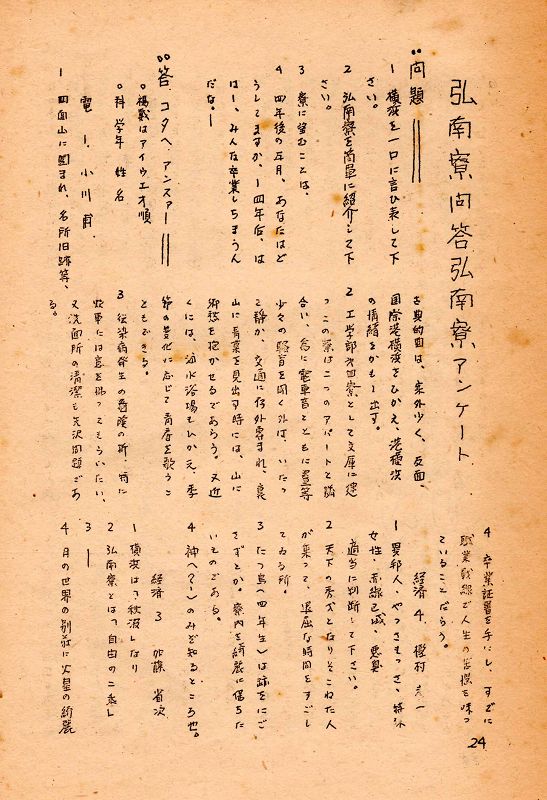 弘南寮問答弘南寮アンケート
"問題
1 横浜を一口に言ひ表して下
さい。
2 弘南寮を簡単に紹介して下
さい。
3 寮に望むことは、
4 四年後の正月、あなたはど
うしてますか、ー四年后、は
はー、みんな卒業しちまうん
だなー
"答 コタヘ、アンスアー
○掲載はアイウエオ順
○科 学年 姓名
電 1、小川 甫
1 四面山に囲まれ、名所旧跡等、
古典的面は、案外少く、反面、
国際港横浜をひかえ、港横浜
の情緒をかもし出す。
2 工学部第四寮として文庫に建
つこの寮は二つのアパートと隣
合い、為に電車音とともに
少々の騒音を聞く外は、いたっ
て静か、交通に仲々恵まれ、裏
山に青葉を見出す時には、山に
郷愁を抱かせるであらう。又近
くには、海水浴場もひかえ、季
節の変化に応じて青春を歌うこ
ともできる。
3 伝染病発生の危険の折、特に
炊事には意を払ってもらいたい、
又洗面所の清潔も先決問題であ
る。
4 卒業証書を手にし、すでに
職業戦線で人生の苦楽を味っ
ていることだらう。
経済 4 植村
1 異邦人、やっさもっさ、特殊
女性、赤線区域、悪臭
適当に判断して下さい。
2 天下の秀才となりそこねた人
が集って、退屈な時間をすごし
てゐる所。
3 たつ鳥へ四年生)は跡をにご
さずとか。寮内を綺麗に保ちた
いものである。
4 神へ?)のみぞ知るところ也。
経済 3 加藤 省次
1 横浜は、秋波しなり
2 弘南寮とは、自由の二乗し
3 ー
4 月の世界の別荘に火星の綺麗
24